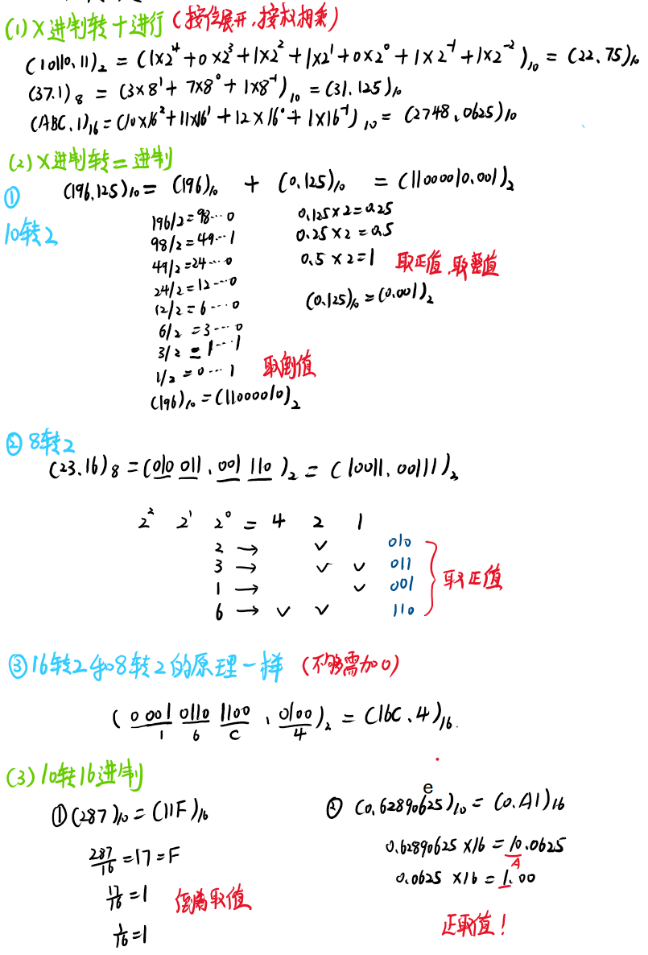 (1) X进制转十进行 (按位展开,按权相乘)
(10110.11)₂ = (1×2⁴+0×2³+1×2²+1×2¹+0×2⁰+1×2⁻¹+1×2⁻²)₁₀ = (22.75)₁₀
(37.1)₈ = (3×8¹+7×8⁰+1×8⁻¹)₁₀ = (31.125)₁₀
(ABC.1)₁₆ = (10×16²+11×16¹+12×16⁰+1×16⁻¹)₁₀ = (2748.0625)₁₀
(2) X进制转二进制
①
10转2
(196.125)₁₀ = (196)₁₀ + (0.125)₁₀ = (1100010.001)₂
196/2=98…0
98/2=49…1
49/2=24…0
24/2=12…0
12/2=6…0
6/2=3…0
3/2=1…1
1/2=0…1
取倒值
(196)₁₀=(11000010)₂
0.125×2=0.25
0.25×2=0.5
0.5×2=1
取正值,取整值
(0.125)₁₀=(0.001)₂
② 8转2
(23.16)₈ = (010 011 . 001 110)₂ = (10011.00111)₂
2² 2¹ 2⁰ = 4 2 1
2 → ✓ 010
3 → ✓ ✓ 011
1 → ✓ 001
6 → ✓ ✓ 110
取正值
③16转2和8转2的原理一样 (不够需加0)
(0001 0110 1100 . 0100)₂ = (16C.4)₁₆.
1 6 C 4
(3) 10转16进制
①(287)₁₀=(11F)₁₆
287/16=17=F
17/16=1
1/16=1
倒着取值
e
② (0.62890625)₁₀ = (0.A1)₁₆
0.62890625×16=10.0625
A
0.0625×16=1.00
正取值!